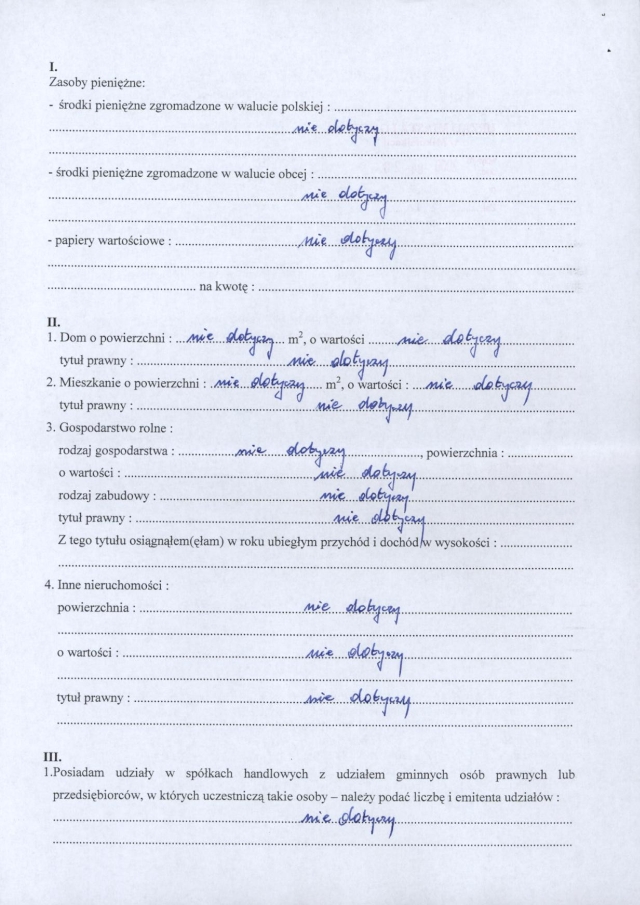 I.
Zasoby pieniężne:
- środki pieniężne zgromadzone w walucie polskiej : ........................................
nie dotyczy
- środki pieniężne zgromadzone w walucie obcej : ........................................
nie dotyczy
- papiery wartościowe : ........ nie dotyczy ........
........ na kwotę : ........
II.
1. Dom o powierzchni : ... nie dotyczy ... m², o wartości ........ nie dotyczy ........
tytuł prawny : ........ nie dotyczy ........
2. Mieszkanie o powierzchni : nie dotyczy .... m², o wartości : ... nie dotyczy ........
tytuł prawny : ........ nie dotyczy ........
3. Gospodarstwo rolne :
rodzaj gospodarstwa : ........ nie dotyczy ........, powierzchnia : ........
o wartości : ........ nie dotyczy ........
rodzaj zabudowy : ........ nie dotyczy ........
tytuł prawny : ........ nie dotyczy ........
Z tego tytułu osiągnąłem(ęłam) w roku ubiegłym przychód i dochód w wysokości : ........
4. Inne nieruchomości :
powierzchnia : ........ nie dotyczy ........
o wartości : ........ nie dotyczy ........
tytuł prawny : ........ nie dotyczy ........
III.
1.Posiadam udziały w spółkach handlowych z udziałem gminnych osób prawnych lub
przedsiębiorców, w których uczestniczą takie osoby – należy podać liczbę i emitenta udziałów :
nie dotyczy